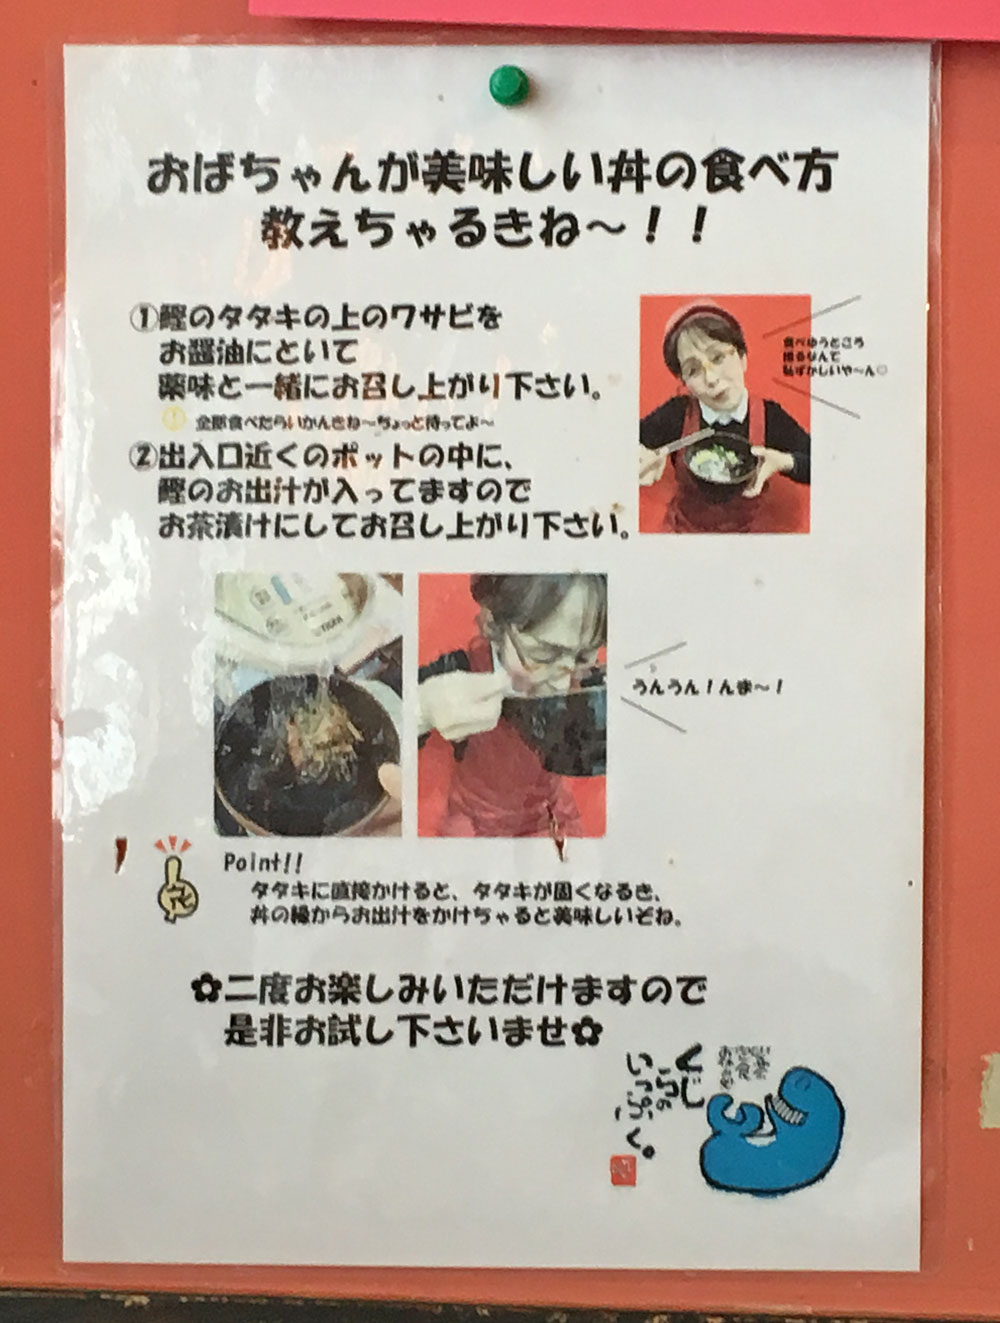 おばちゃんが美味しい丼の食べ方
教えちゃるきね〜！！
①鰹のタタキの上のワサビを
お醤油にといて
薬味と一緒にお召し上がり下さい。
全部食べたらいかんきね〜ちょっと待ってよ〜
食べゆうところ
撮るなんて
恥ずかしいや〜ん
②出入口近くのポットの中に、
鰹のお出汁が入ってますので
お茶漬けにしてお召し上がり下さい。
うんうん！んま〜！
Point!!
タタキに直接かけると、タタキが固くなるき、
丼の縁からお出汁をかけちゃると美味しいぞね。
✿二度お楽しみいただけますので
是非お試し下さいませ✿
くじ
らの
いっぷく。